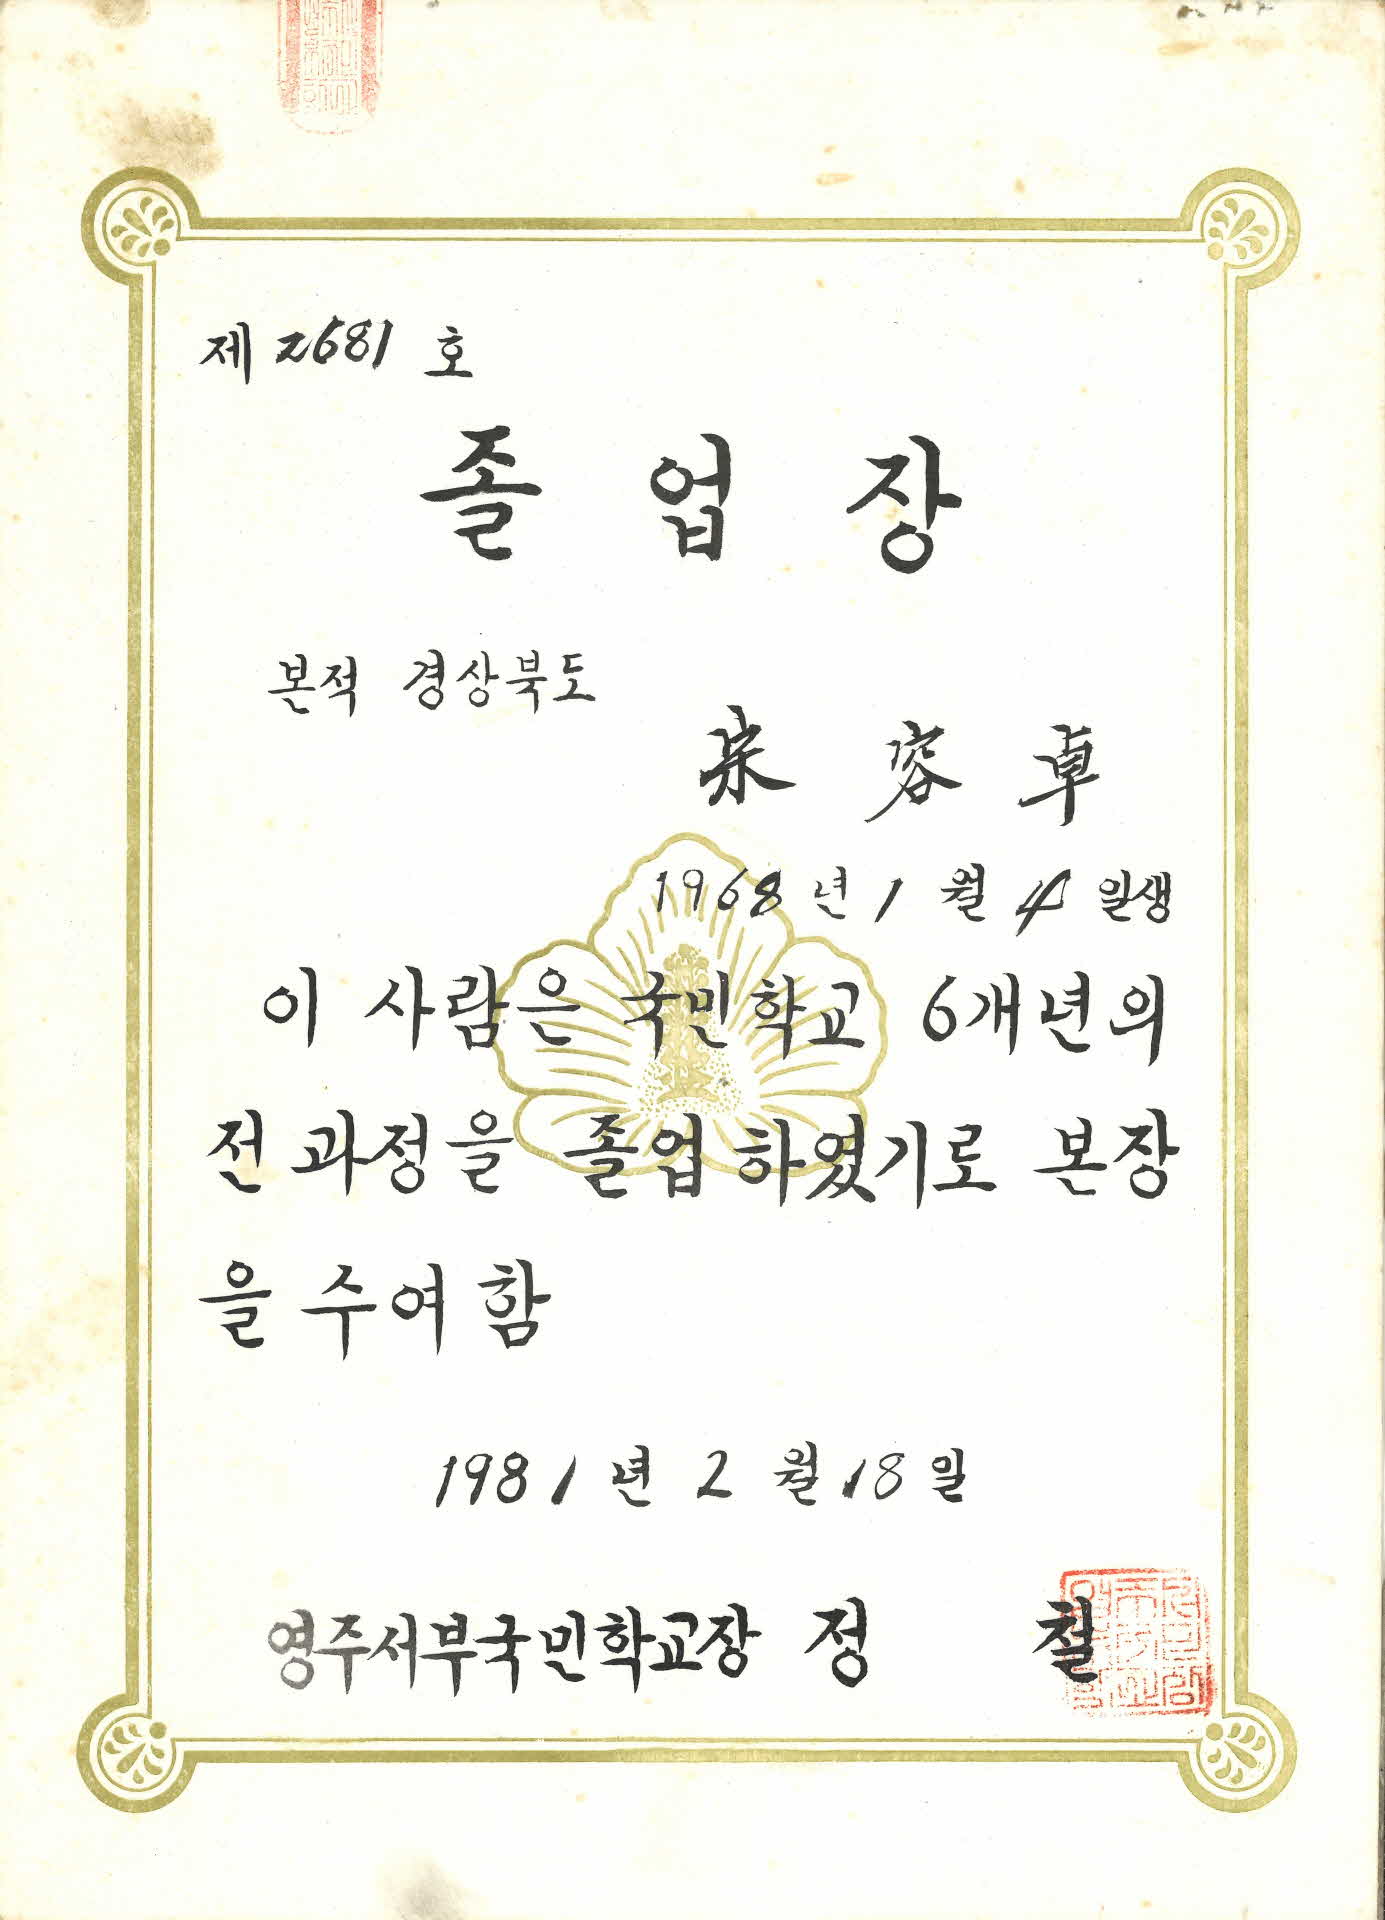 제 2681 호
졸 업 장
본적 경상북도
宋 容 卓
1968년 1월 4일생
이 사람은 국민학교 6개년의
전과정을 졸업하였기로 본장
을 수여함
1981년 2월 18일
영주서부국민학교장 정 철